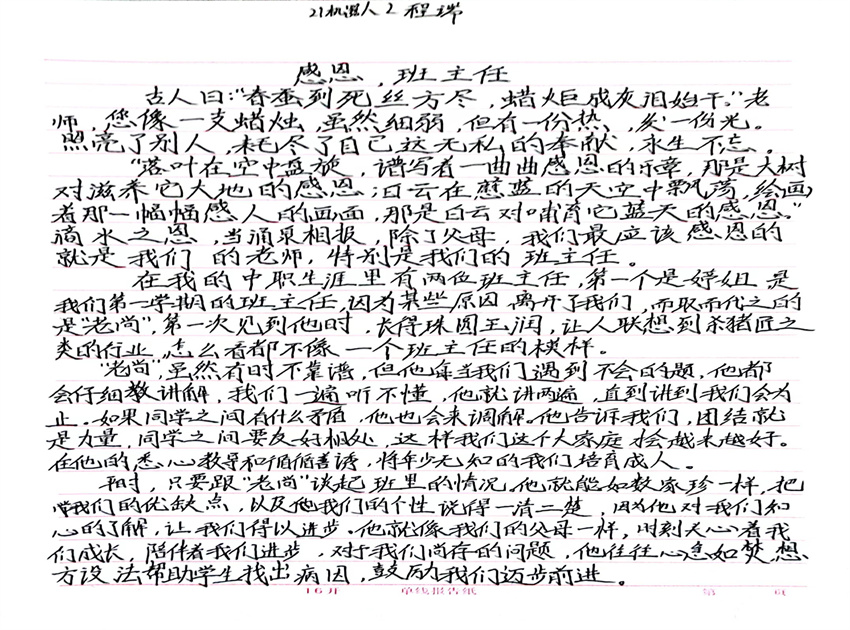 21机器人2 程瑞
感恩,班主任
古人曰:“春蚕到死丝方尽,蜡炬成灰泪始干。”老
师,您像一支蜡烛,虽然细弱,但有一份热,发一份光。
照亮了别人,耗尽了自已这无私的奉献,永生不忘。
“落叶在空中盘旋,谱写着一曲曲感恩的乐章,那是大树
对滋养它大地的感恩;白云在蔚蓝的天空中飘荡,绘画
着那一幅幅感人的画面,那是白云对哺育它蓝天的感恩。”
滴水之恩,当涌泉相报,除了父母,我们最应该感恩的
就是我们的老师,特别是我们的班主任。
在我的中职生涯里有两位班主任,第一个是婷姐是
我们第一学期的班主任,因为某些原因离开了我们,而取而代之的
是“老尚”,第一次见到他时,长得珠圆玉润,让人联想到杀猪匠之
类的行业,怎么看都不像一个班主任的模样。
“老尚”,虽然有时不靠谱,但他每当我们遇到不会的题,他都
会仔细教讲解,我们一遍听不懂,他就讲两遍,直到讲到我们会为
止。如果同学之间有什么矛盾,他也会来调解。他告诉我们,团结就
是力量,同学之间要友好相处,这样我们这个大家庭才会越来越好。
在他的悉心教导和循循善诱,将年少无知的我们培育成人。
平时,只要跟“老尚”谈起班里的情况。他就能如数家珍一样,把
我们的优缺点,以及他我们的个性说得一清二楚,因为他对我们知
心的了解,让我们得以进步。他就像我们的父母一样,时刻关心着我
们成长,陪伴着我们进步,对于我们尚存的问题,他往往心急如焚,想
方设法帮助学生找出病因,鼓励我们迈步前进。
16开 单线报告纸 第 页